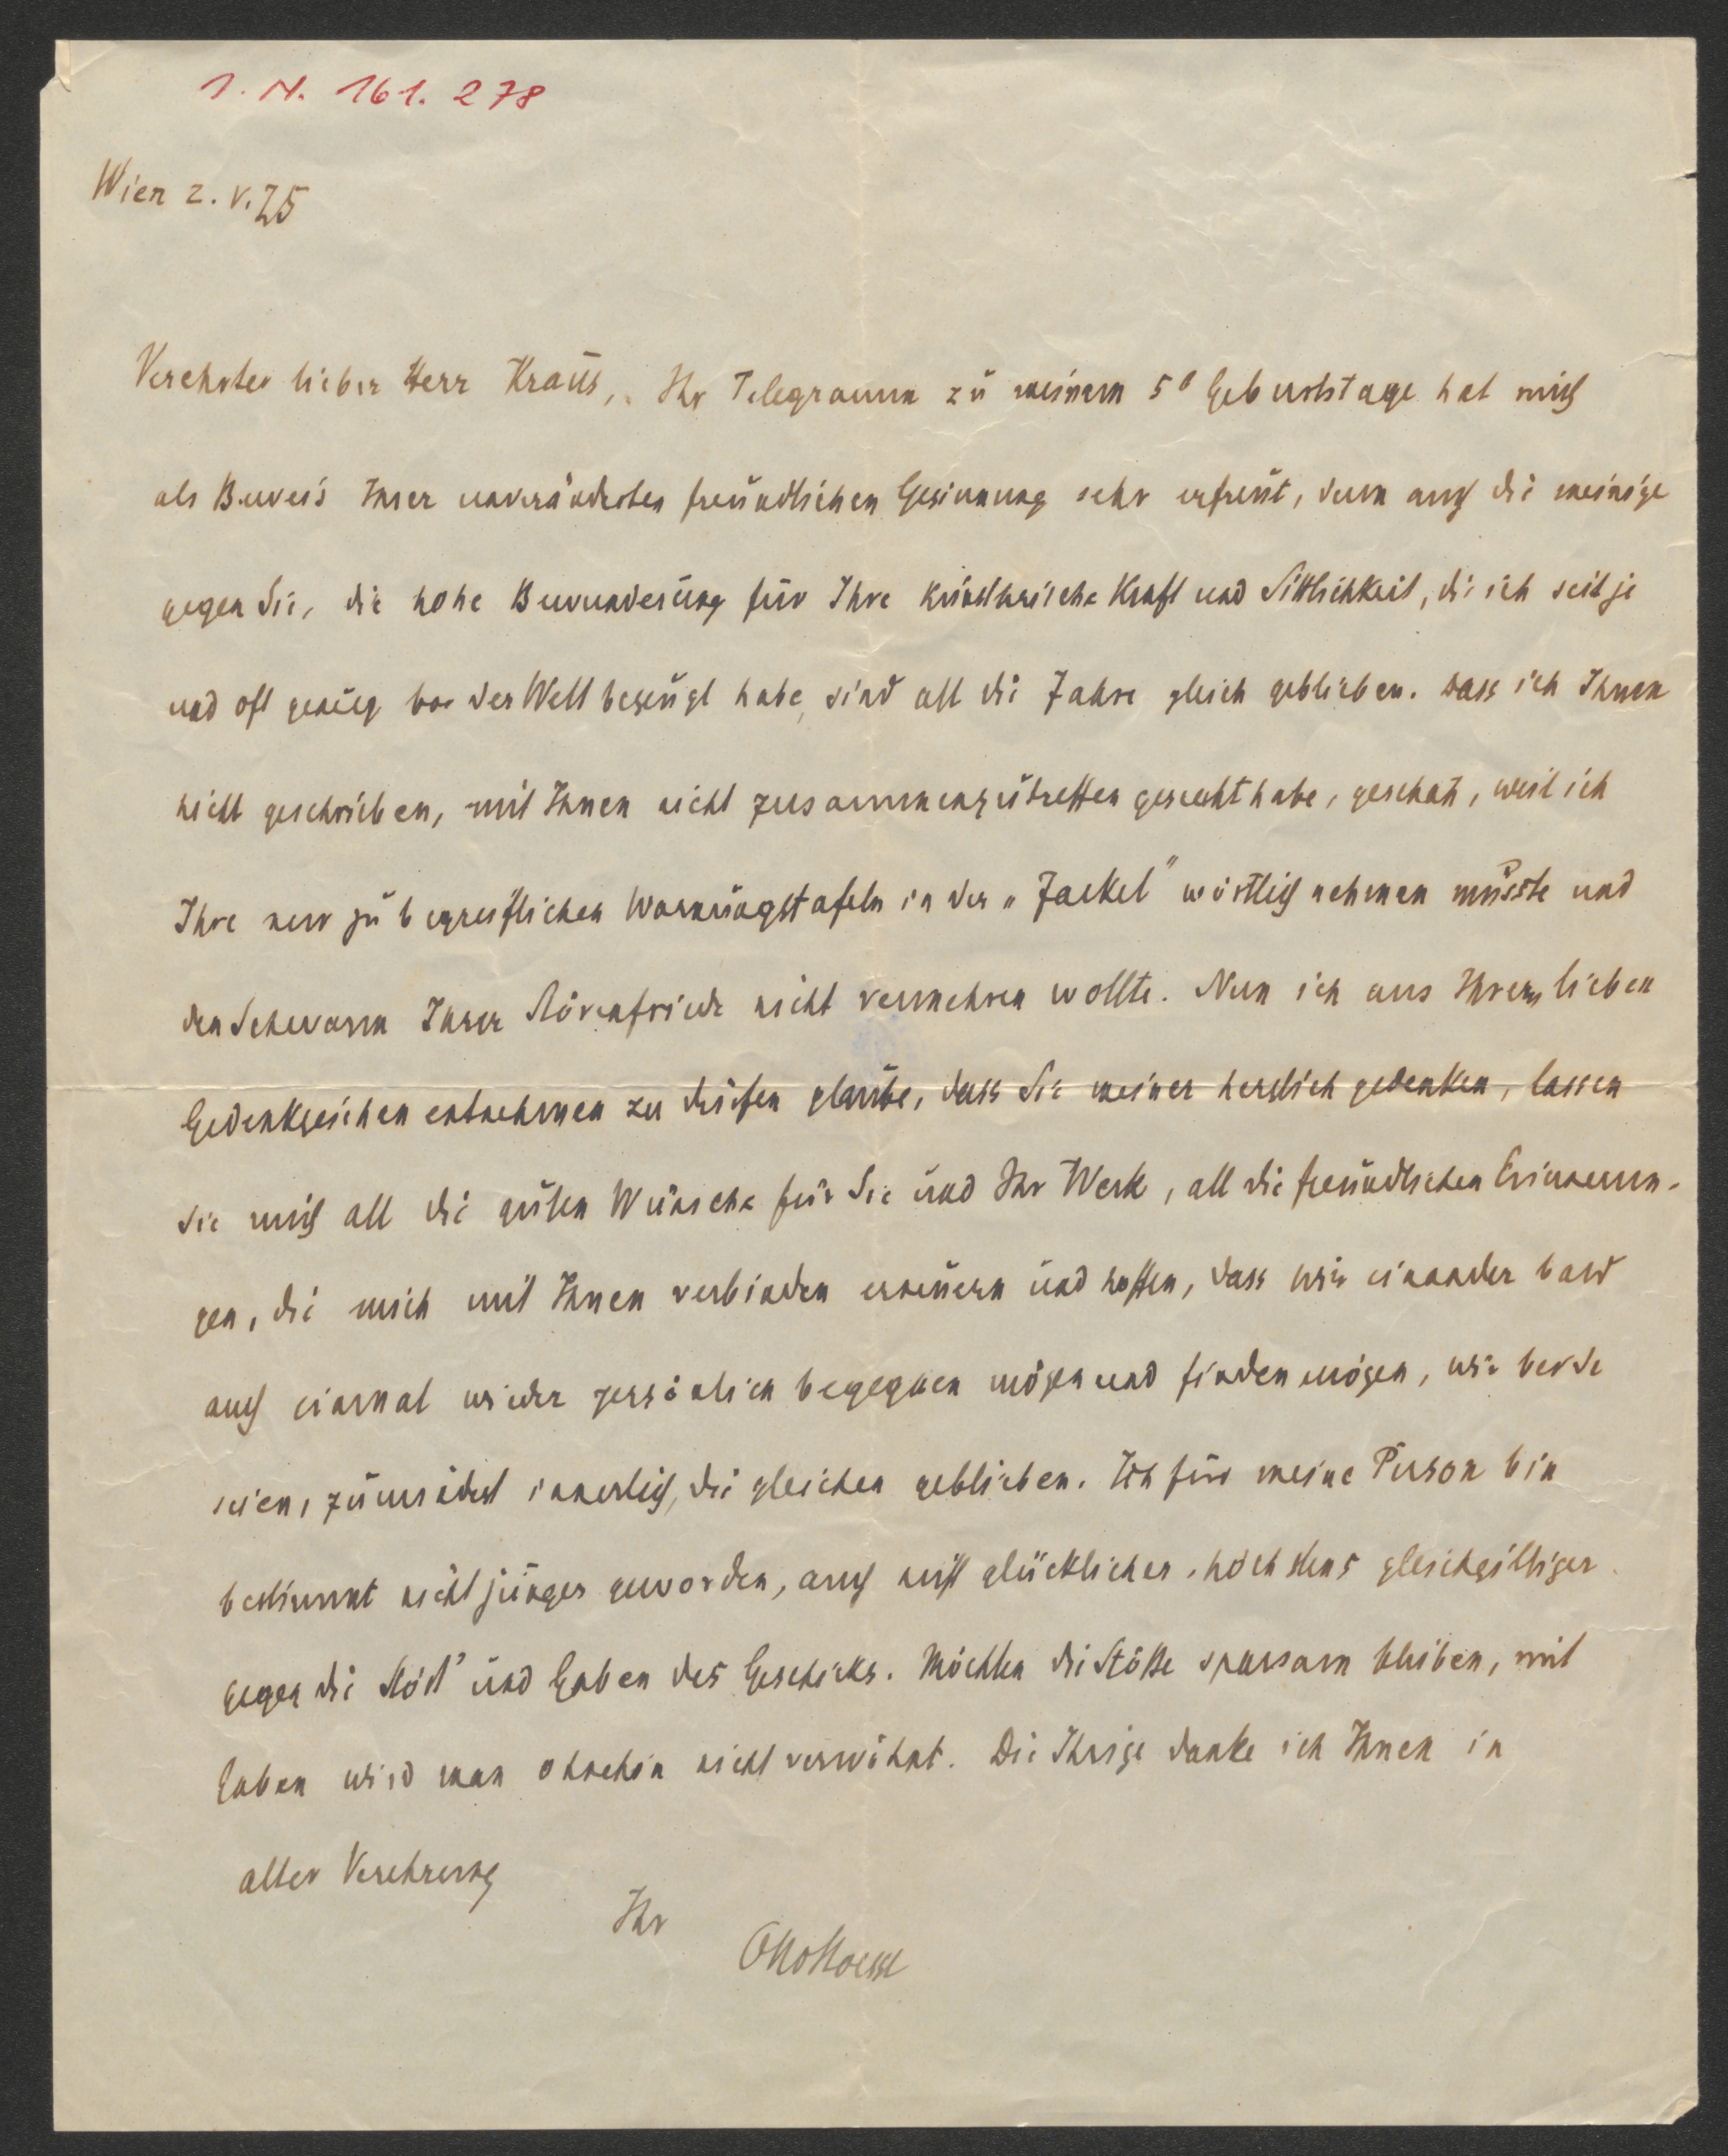 I. N. 161. 278
Wien 2. V. 25
Verehrter lieber Herr Kraus, Ihr Telegramm zu meinem 50 Geburtstage hat mich
als Beweis Ihrer unveränderten freundlichen Gesinnung sehr erfreut, denn auch die meinige
gegen Sie, die hohe Bewunderung für Ihre künstlerische Kraft und Sittlichkeit, die ich seit je
und oft genug vor der Welt bezeugt habe, sind all die Jahre gleich geblieben. Dass ich Ihnen
nicht geschrieben, mit Ihnen nicht zusammenzutreffen gesucht habe, geschah, weil ich
Ihre nur zu begreiflichen Warnungstafeln in der „Fackel" wörtlich nehmen musste und
den Schwarm Ihrer Störenfriede nicht vermehren wollte. Nun ich aus Ihrem lieben
Gedenkzeichen entnehmen zu dürfen glaube, dass Sie meiner herzlich gedenken, lassen
Sie mich all die guten Wünsche für Sie und Ihr Werk, all die freundlichen Erinnerun-
gen, die mich mit Ihnen verbinden erneuern und hoffen, dass wir einander bald
auch einmal wieder persönlich begegnen mögen und finden mögen, wir beide
seien, zumindest innerlich, die gleichen geblieben. Ich für meine Person bin
bestimmt nicht jünger geworden, auch nicht glücklicher, höchstens gleichgültiger
gegen die Stöss' und Gaben des Geschicks. Möchten die Stösse sparsam bleiben, mit
Gaben wird man ohnehin nicht verwöhnt. Die Ihrige danke ich Ihnen in
alter Verehrung
Ihr
Otto Stoessl